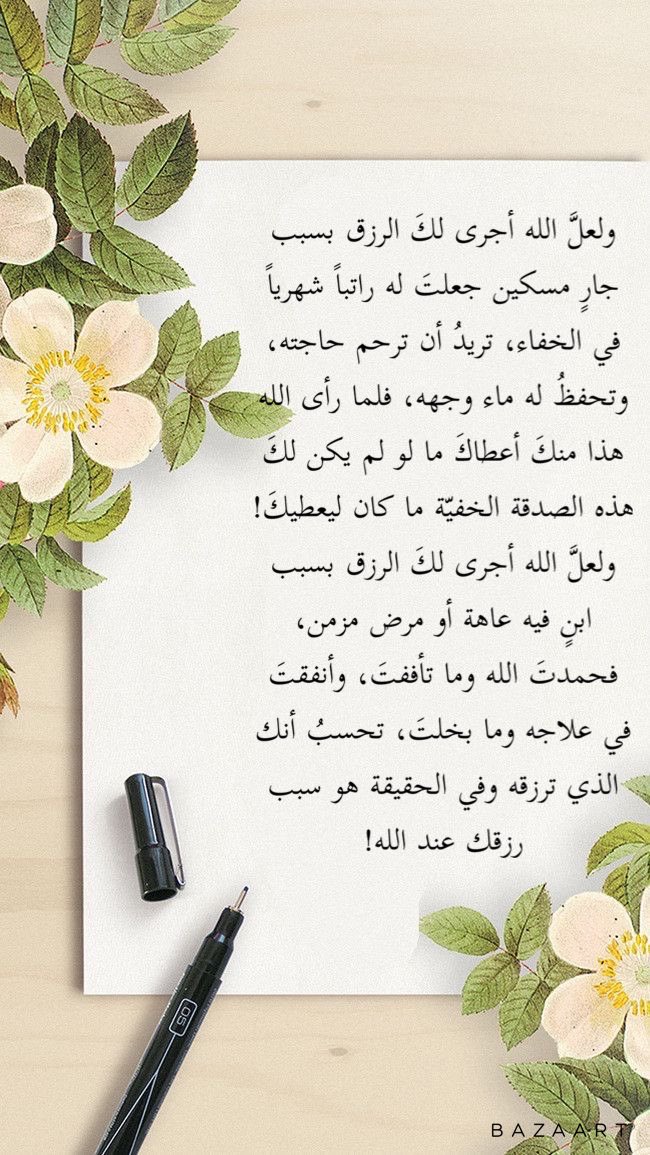 ولعلَّ الله أجرى لكَ الرزق بسبب
جارٍ مسكين جعلتَ له راتباً شهرياً
في الخفاء، تريدُ أن ترحم حاجته،
وتحفظُ له ماء وجهه، فلما رأى الله
هذا منكَ أعطاكَ ما لو لم يكن لكَ
هذه الصدقة الخفيّة ما كان ليعطيكَ!
ولعلَّ الله أجرى لكَ الرزق بسبب
ابنٍ فيه عاهة أو مرض مزمن،
فحمدتَ الله وما تأففتَ، وأنفقتَ
في علاجه وما بخلتَ، تحسبُ أنك
الذي ترزقه وفي الحقيقة هو سبب
رزقك عند الله!
05
BAZAART